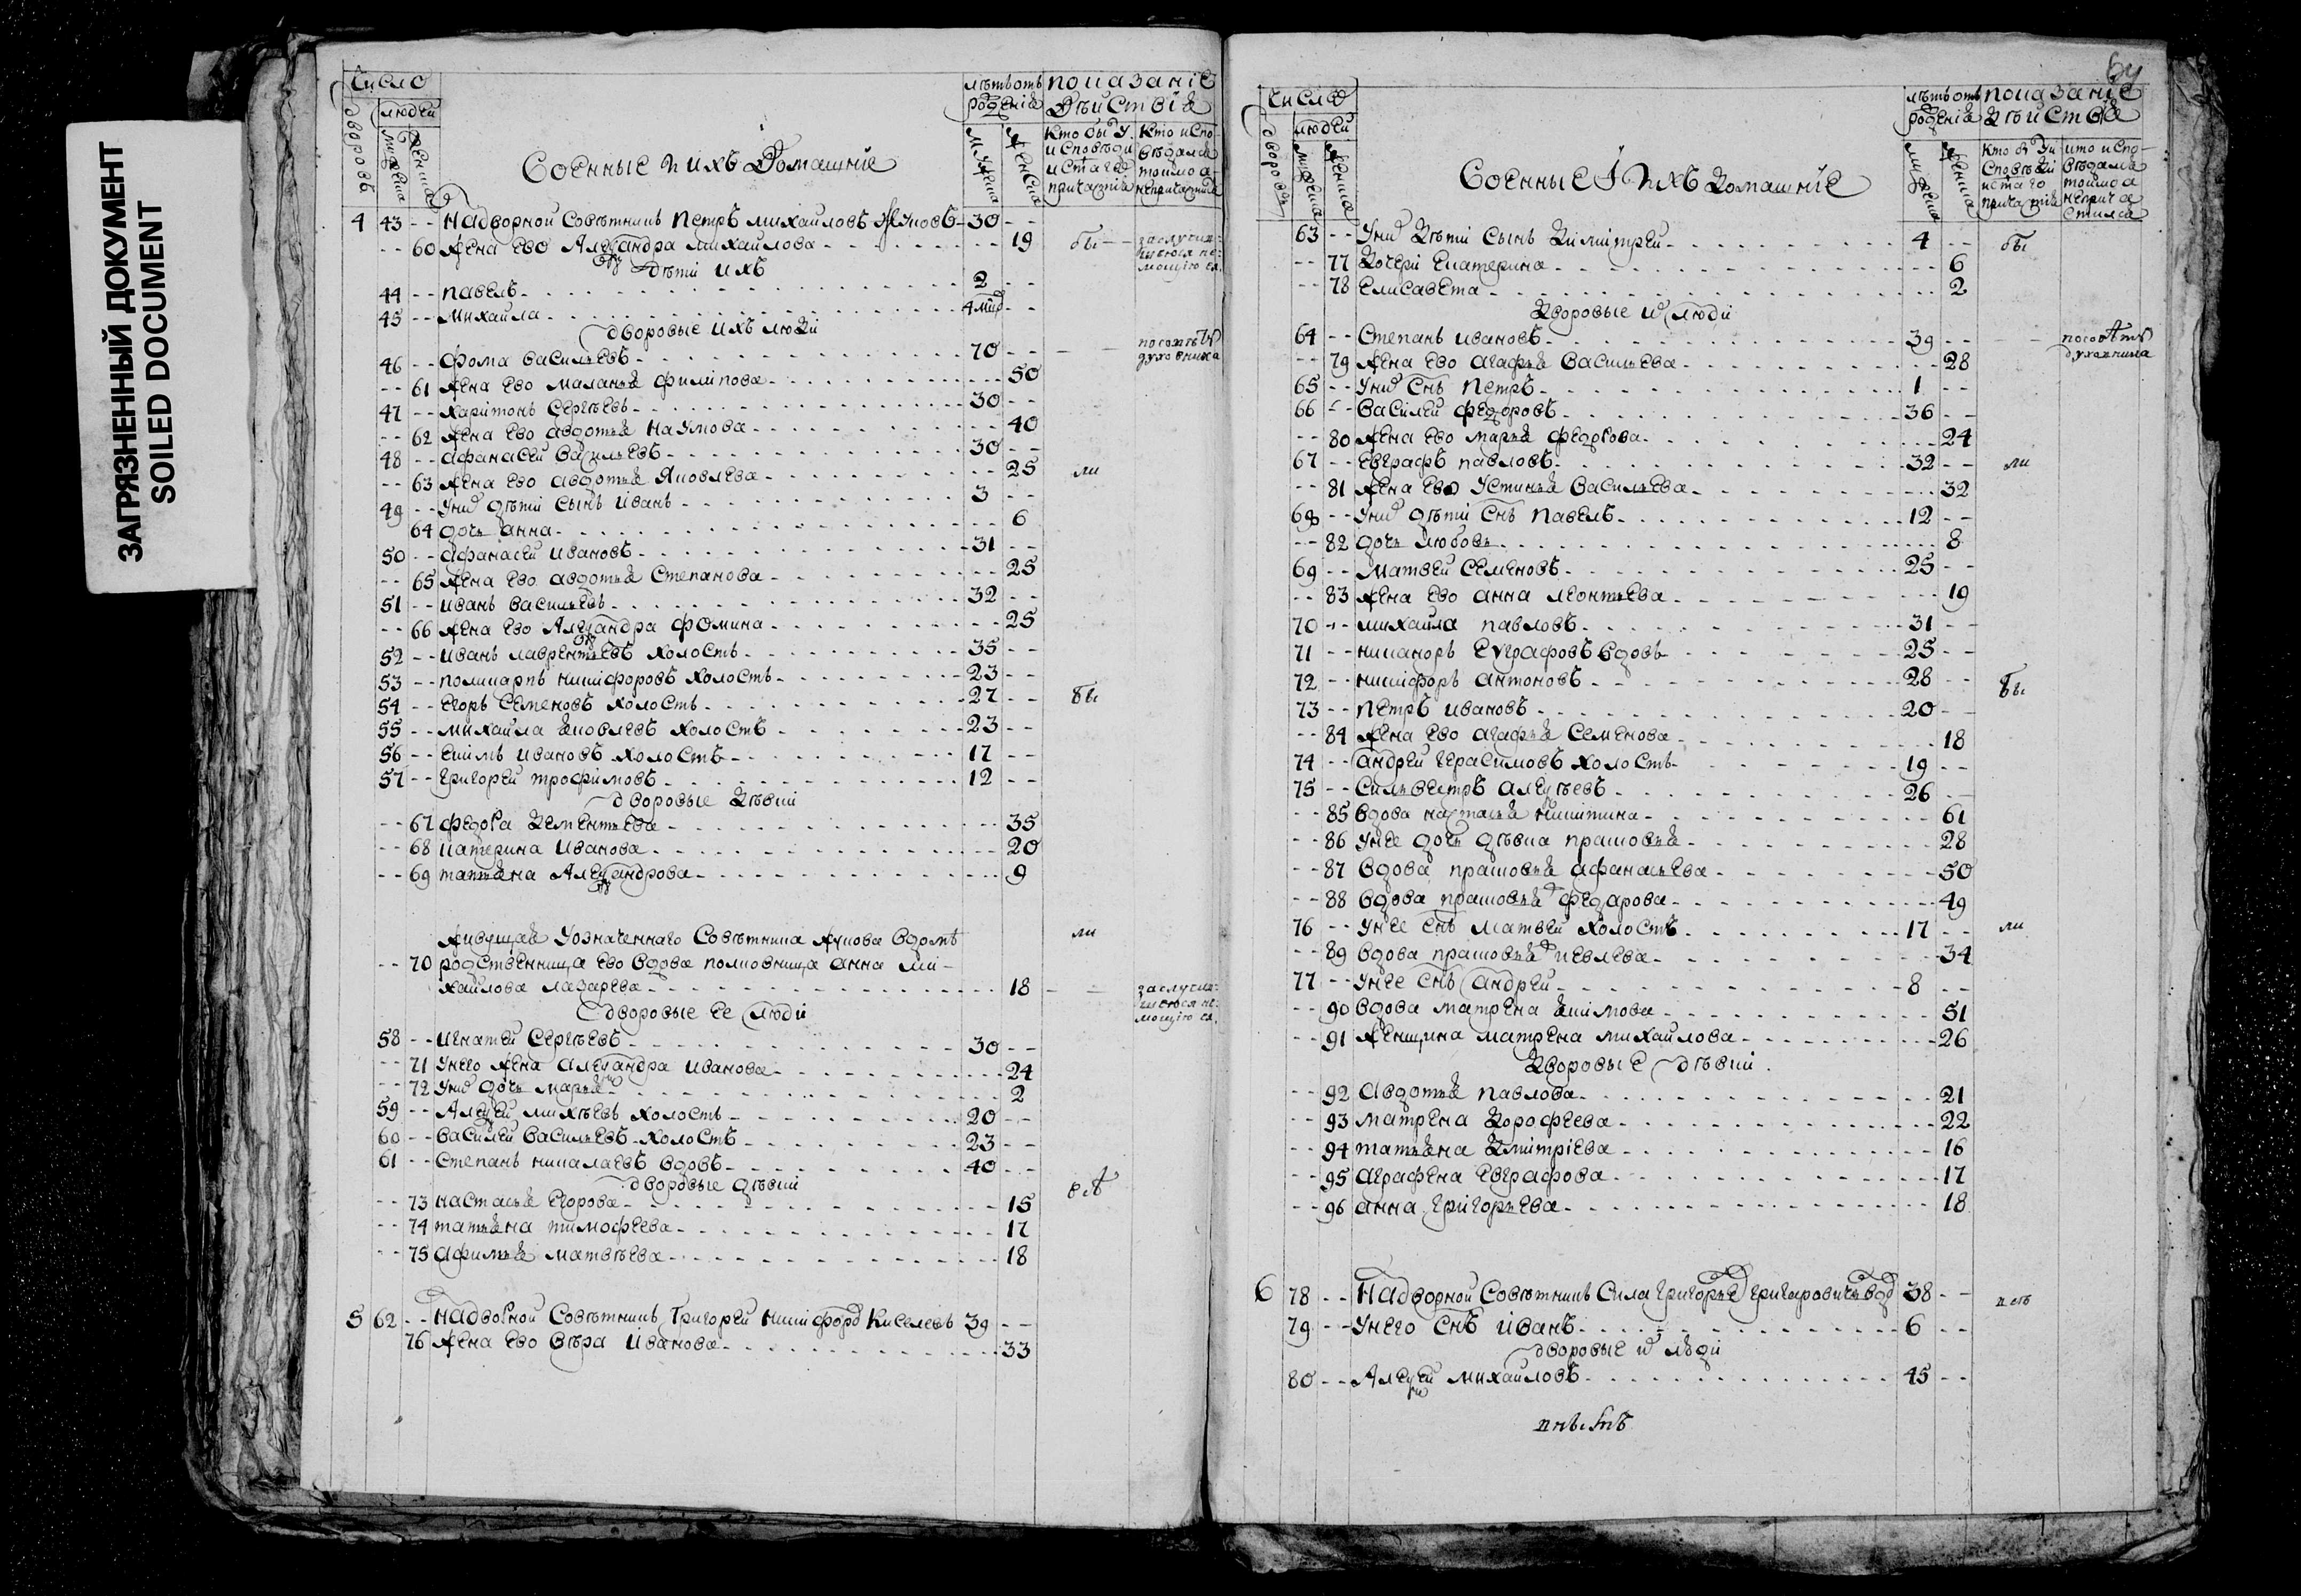 ЗАГРЯЗНЕННЫЙ ДОКУМЕНТ
SOILED DOCUMENT
Число
людей
дворовъ
лѣтъ отъ
показаніе
дѣйствія
Кто бы у
исповѣди
и стаго
Кто испо-
вѣдался
Военные и ихъ домашніе
4 43 -- Надворной Совѣтникъ Петръ Михайловъ 30 --
-- 60 жена ево Александра Михайлова -- 19
дѣти ихъ
44 -- Павелъ 2 --
45 -- Михайла 4
дворовые ихъ люди
46 -- Фома Васильевъ 70 --
-- 61 жена ево Маланья Филипова -- 50
47 -- Харитонъ Сергѣевъ 30 --
-- 62 жена ево Авдотья Наумова -- 40
48 -- Афанасей Васильевъ 30 --
-- 63 жена ево Авдотья Яковлева -- 25
49 -- у них дѣти сынъ Иванъ 3 --
64 дочь Анна -- 6
50 -- Афанасей Ивановъ 31 --
-- 65 жена ево Авдотья Степанова -- 25
51 -- Иванъ Васильевъ 32 --
-- 66 жена ево Александра Фомина -- 25
52 -- Иванъ Лаврентьевъ холостъ 35 --
53 -- Поликарпъ Никифоровъ холостъ 23 --
54 -- Егоръ Семеновъ холостъ 27 --
55 -- Михайла Яковлевъ холостъ 23 --
56 -- Екимъ Ивановъ холостъ 17 --
57 -- Григорей Трофимовъ 12 --
дворовые дѣвки
-- 67 Федора Дементьева -- 35
-- 68 Катерина Иванова -- 20
-- 69 Татьяна Александрова -- 9
Живущая у означеннаго Совѣтника Жукова в домѣ
-- 70 родственница ево вдова полковница Анна Ми-
хайлова Лазарева -- 18
дворовые ее люди
58 -- Игнатей Сергѣевъ 30 --
-- 71 у него жена Александра Иванова -- 24
-- 72 у них дочь Марья -- 2
59 -- Алексѣй Михѣевъ холостъ 20 --
60 -- Василей Васильевъ холостъ 23 --
61 -- Степанъ Николаевъ вдовъ 40 --
дворовые дѣвки
-- 73 Настасья Егорова -- 15
-- 74 Татьяна Тимофеева -- 17
-- 75 Афимья Матвѣева -- 18
5 62 -- Надворной Совѣтникъ Григорей Никифоров Киселевъ 39 --
76 жена ево Вѣра Иванова -- 33
Число
людей
дворовъ
лѣтъ отъ
показаніе
дѣйства
Военные и ихъ домашніе
63 -- у них дѣти сынъ Димитрей 4 --
бы
-- 77 дочери Екатерина -- 6
-- 78 Елисавета -- 2
дворовые их люди
64 -- Степанъ Ивановъ 39 --
-- 79 жена ево Агафья Васильева -- 28
65 -- у них снъ Петръ 1 --
66 -- Василей Федоровъ 36 --
-- 80 жена ево Марья Федорова -- 24
67 -- Евграфъ Павловъ 32 --
ли
-- 81 жена ево Устинья Васильева -- 32
68 -- у них дѣти снъ Павелъ 12 --
-- 82 дочь Любовь -- 8
69 -- Матвей Семеновъ 25 --
-- 83 жена ево Анна Леонтьева -- 19
70 -- Михайла Павловъ 31 --
71 -- Никаноръ Еуграфовъ вдовъ 25 --
72 -- Никифоръ Антоновъ 28 --
бы
73 -- Петръ Ивановъ 20 --
-- 84 жена ево Агафья Семенова -- 18
74 -- Андрей Герасимовъ холостъ 19 --
75 -- Сильвестръ Алексѣевъ 26 --
-- 85 вдова Настасья Никитина -- 61
-- 86 у нее дочь дѣвка Прасковья -- 28
-- 87 вдова Прасковья Афанасьева -- 50
-- 88 вдова Прасковья Федарова -- 49
76 -- у нее снъ Матвей холостъ 17 --
ли
-- 89 вдова Прасковья -- 34
77 -- у нее снъ Андрей 8 --
-- 90 вдова Матрена Якимова -- 51
-- 91 женщина Матрена Михайлова -- 26
дворовые дѣвки
-- 92 Авдотья Павлова -- 21
-- 93 Матрена Дорофеева -- 22
-- 94 Татьяна Дмитріева -- 16
-- 95 Аграфена Евграфова -- 17
-- 96 Анна Григорьева -- 18
6 78 -- Надворной Совѣтникъ Сила Григорьев 38 --
79 -- у него снъ Иванъ 6 --
дворовые их люди
80 -- Алексей Михайловъ 45 --